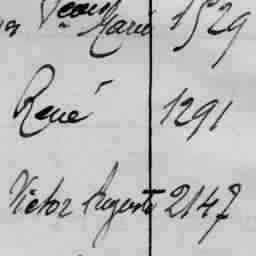 Jean Marie 1529
René 1291
Victor Auguste 2147